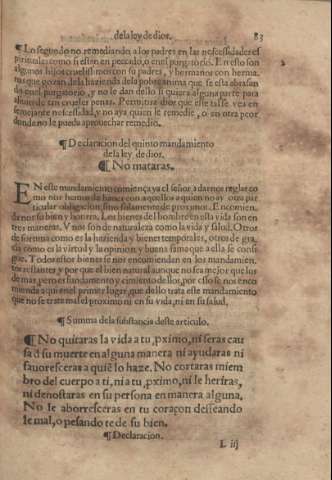 de la ley de dios. 83
¶ Lo segundo no remediando a los padres en las necessidades es
pirituales como si estan en peccado, o en el purgatorio. En esto son
algunos hijos cruelissimos con su padres, y hermanos con herma
nos que gozan de la hazienda de la pobre anima que se esta abrasan
do en el purgatorio, y no se dan dello si quiera alguna parte para
ahorro de tan crueles penas. Permitira dios que este tal se vea en
semejante necessidad, y no aya quien le remedie, o en otra peor
donde no le pueda aprouechar remedio.
¶ Declaracion del quinto mandamiento
de la ley de dios.
¶ No mataras.
EN este mandamiento comiença ya el señor a darnos reglas co
mo nos hemos de hauer con aquellos a quien no y otra par
ticular obligacion, sino solamente de proximos. Encomien
danos su bien y honrra. Los bienes del hombre en esta vida son en
tres maneras. Vnos son de naturaleza como la vida y salud. Otros
de fortuna como es la hazienda y bienes temporales, otros de gra
cia como es la virtud y la opinion y buena fama que a ella se consi
gue. Todos estos bienes se nos encomiendan en los mandamien
tos restantes y por que el bien natural aunque no sea mejor que los
de mas, pero es fundamento y cimiento dellos, por esso se nos enco
mienda aqui en el primer lugar, que desso trata este mandamiento
que no se trate mal el proximo ni en su vida, ni en su salud.
¶ Summa de la substancia deste articulo.
¶ No quitaras la vida a tu, pximo, ni seras cau
sa d̄ su muerte en alguna manera ni ayudaras ni
fauoresceras a quiē lo haze. No cortaras miem
bro del cuerpo a ti, ni a tu, pximo, ni le heriras,
ni denostaras en su persona en manera alguna.
No le aborresceras en tu coraçon desseando
le mal, o pesando te de su bien.
¶ Declaracion.
L iij